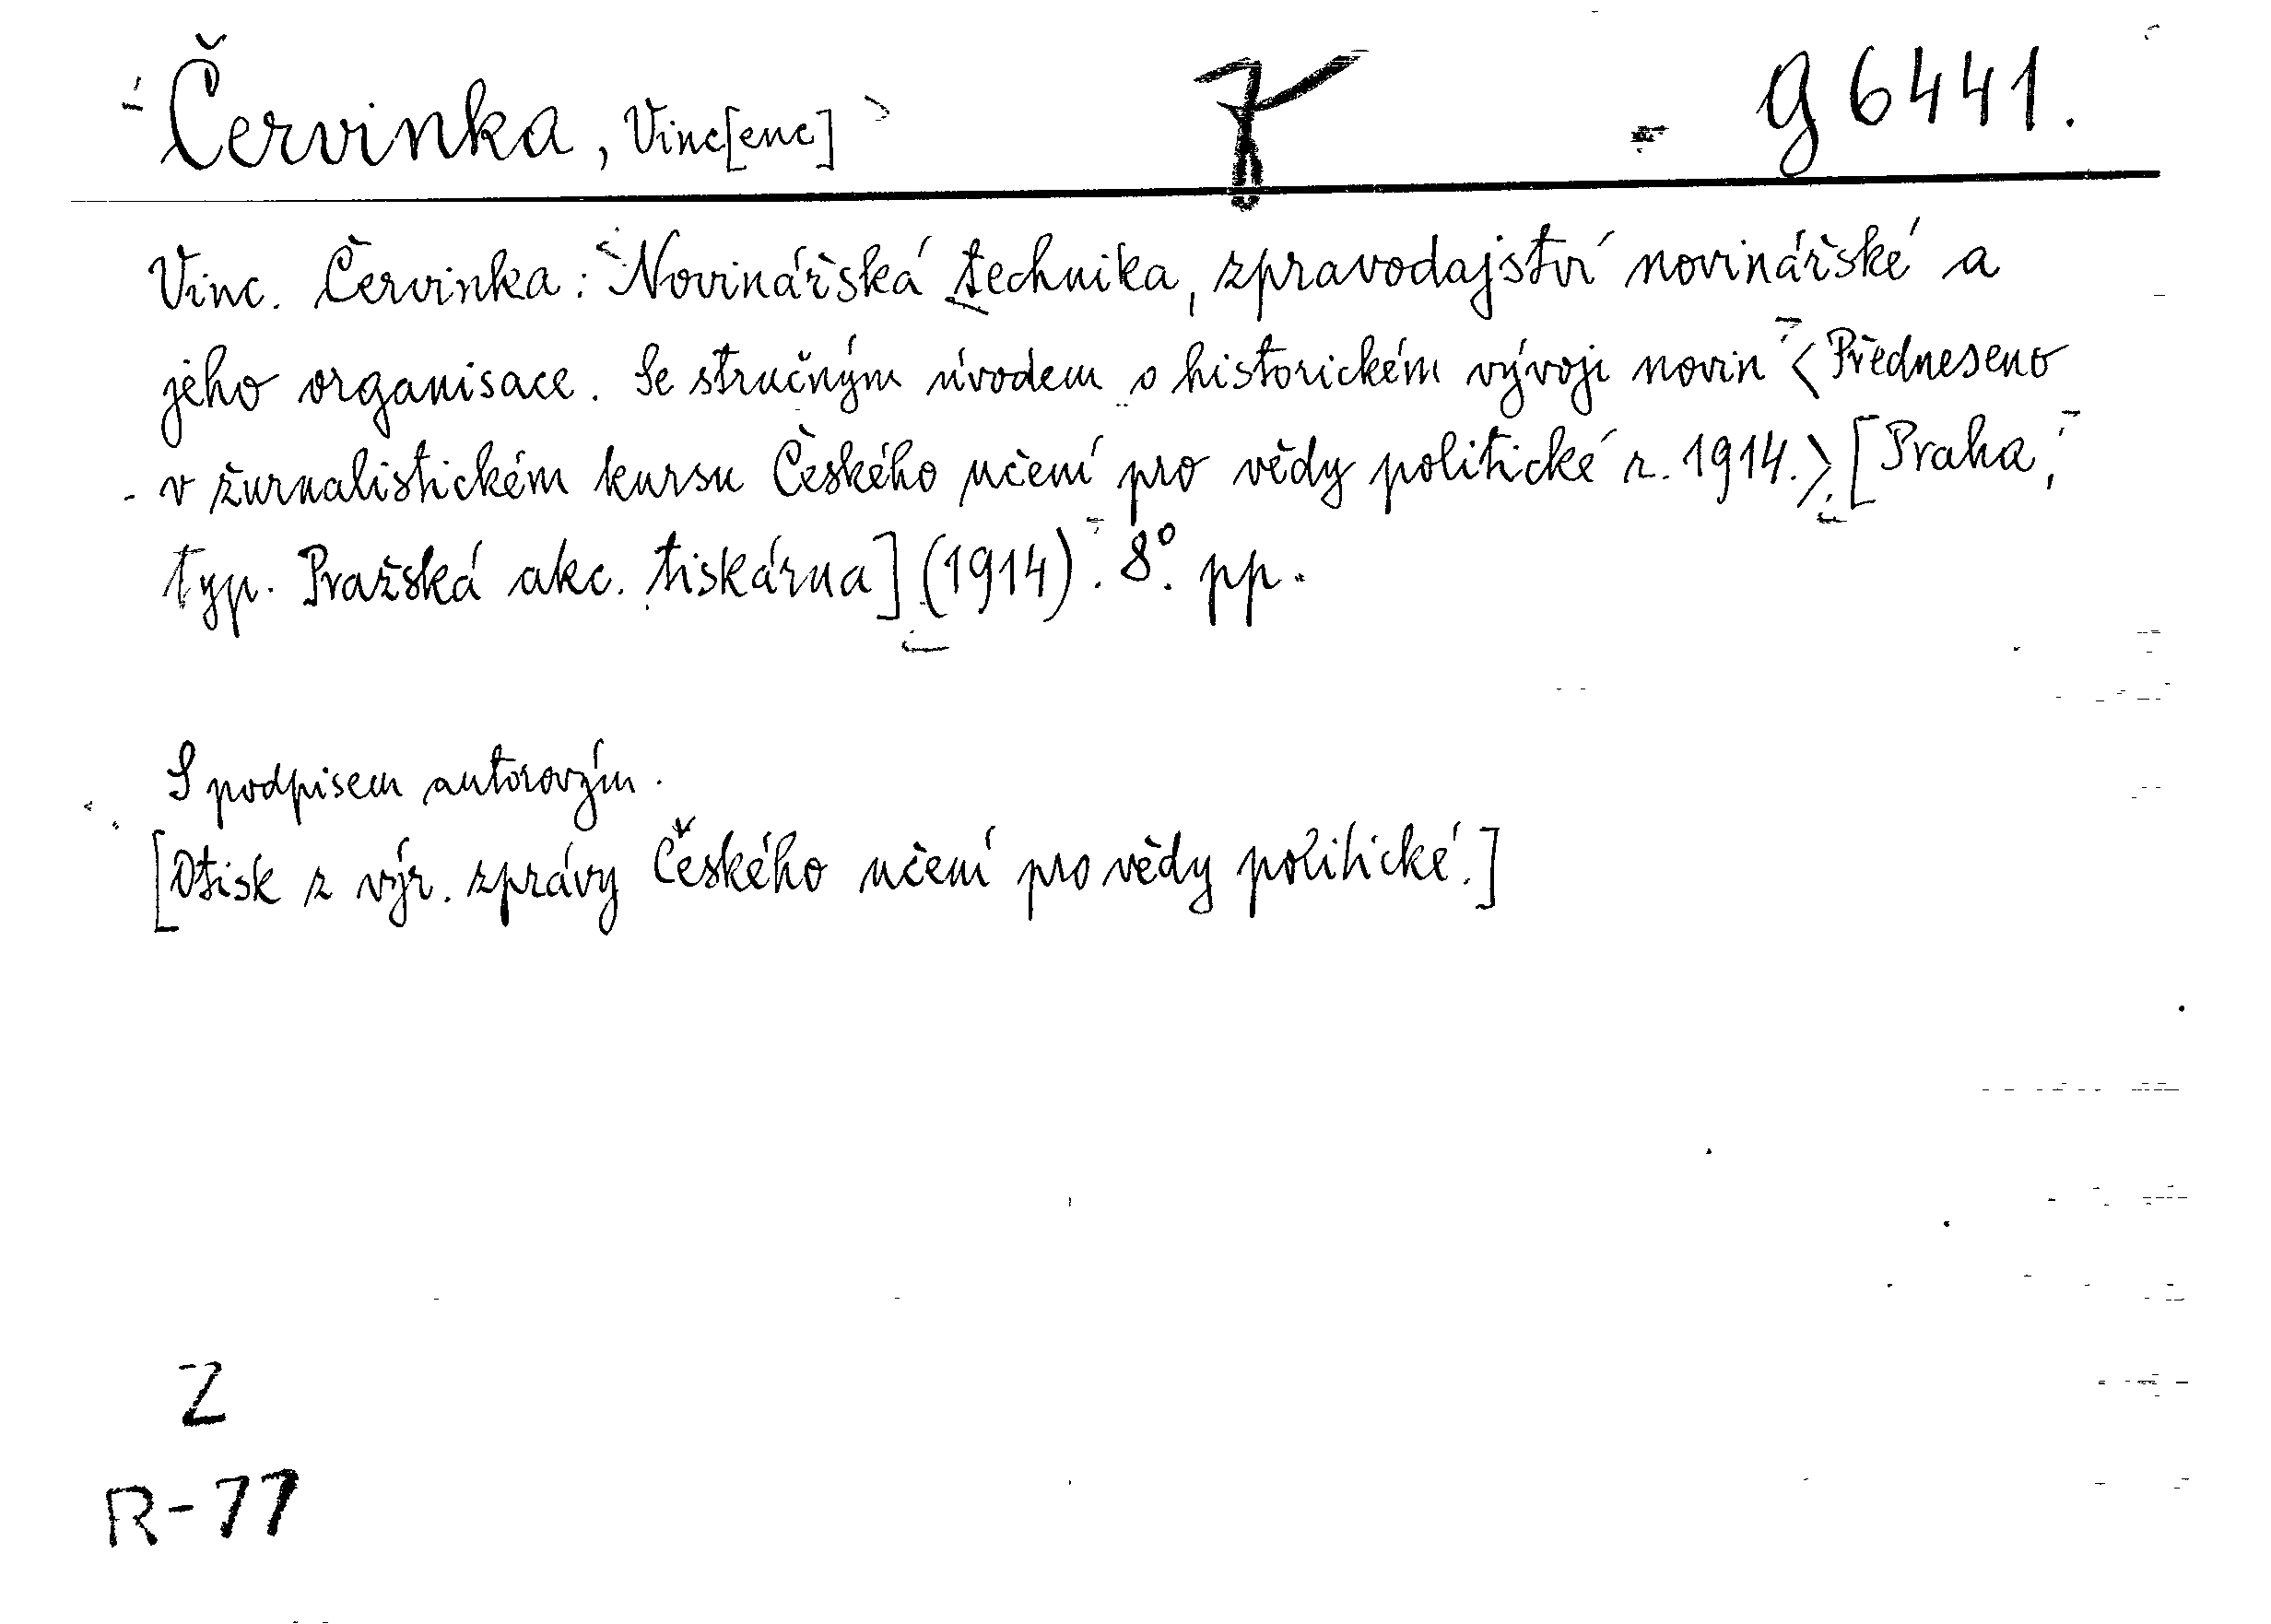 Červinka, Vinc[enc] g 6441.
Vinc. Červinka: Novinářská technika, zpravodajství novinářské a
jeho organisace. Se stručným úvodem o historickém vývoji novin <Předneseno
v žurnalistickém kursu Českého učení pro vědy politické r. 1914.>. [Praha,
typ. Pražská akc. tiskárna] (1914). 8°. pp.
S podpisem autorovým.
[Otisk z výr. zprávy Českého učení pro vědy politické.]
Z
R-77